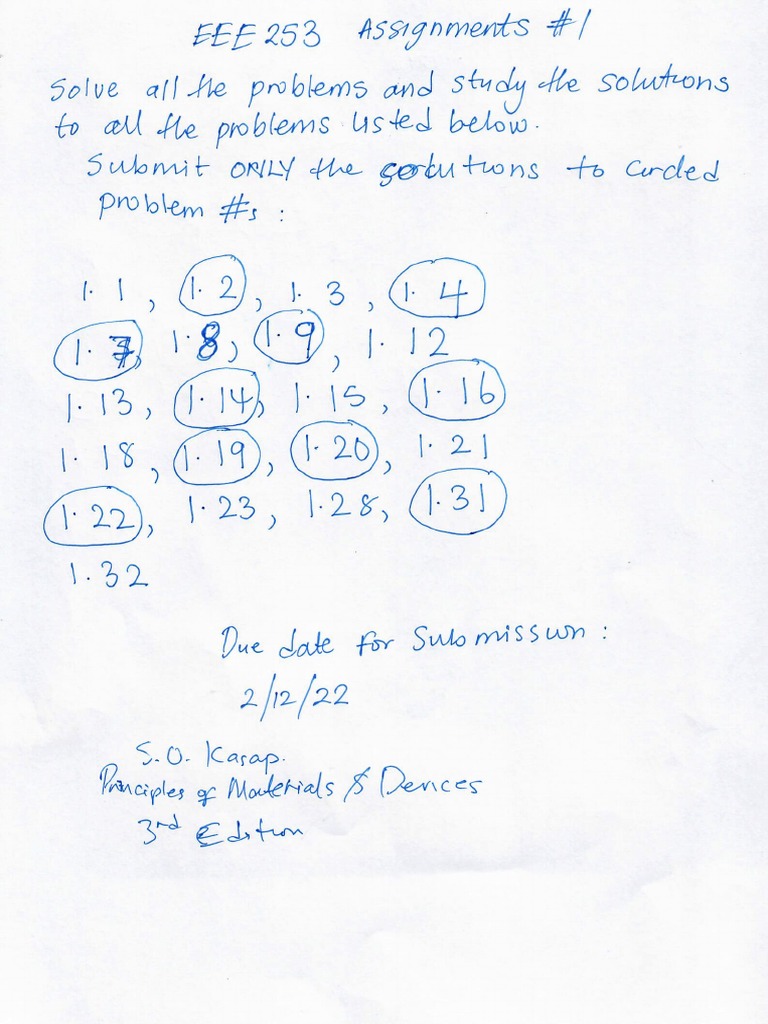 EEE 253 Assignments #1
Solve all the problems and study the solutions
to all the problems listed below.
Submit ONLY the solutions to circled
problem #s :
1.1, 1.2, 1.3, 1.4
1.7, 1.8, 1.9, 1.12
1.13, 1.14, 1.15, 1.16
1.18, 1.19, 1.20, 1.21
1.22, 1.23, 1.28, 1.31
1.32
Due date for Submission :
2/12/22
S.O. Kasap.
Principles of Materials & Devices
3rd Edition